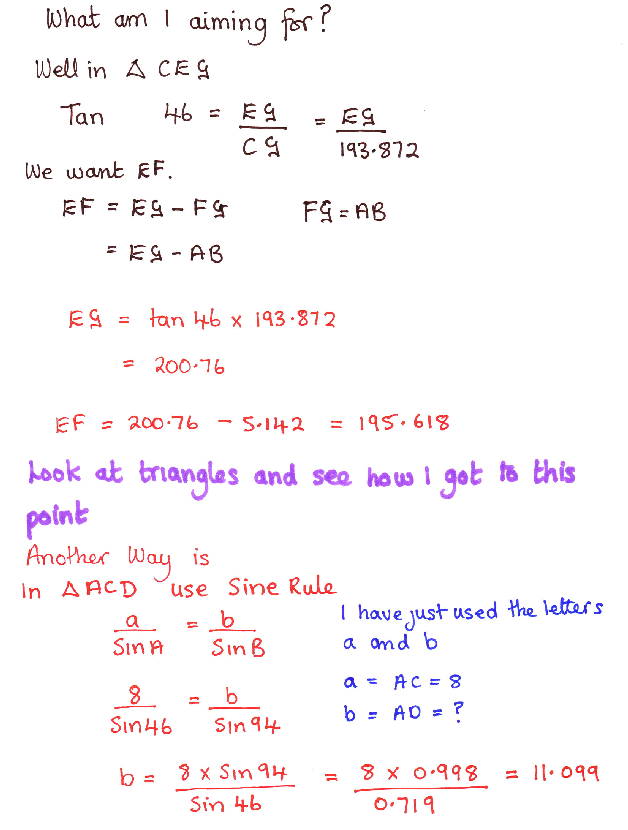 What am I aiming for?
Well in △ CEG
Tan 46 = EG/CG = EG/193.872
We want EF.
EF = EG - FG FG = AB
= EG - AB
EG = tan 46 × 193.872
= 200.76
EF = 200.76 - 5.142 = 195.618
Look at triangles and see how I got to this
point
Another Way is
In △ ACD use Sine Rule
a/Sin A = b/Sin B
I have just used the letters
a and b
8/Sin 46 = b/Sin 94
a = AC = 8
b = AD = ?
b = 8 × Sin 94/Sin 46 = 8 × 0.998/0.719 = 11.099